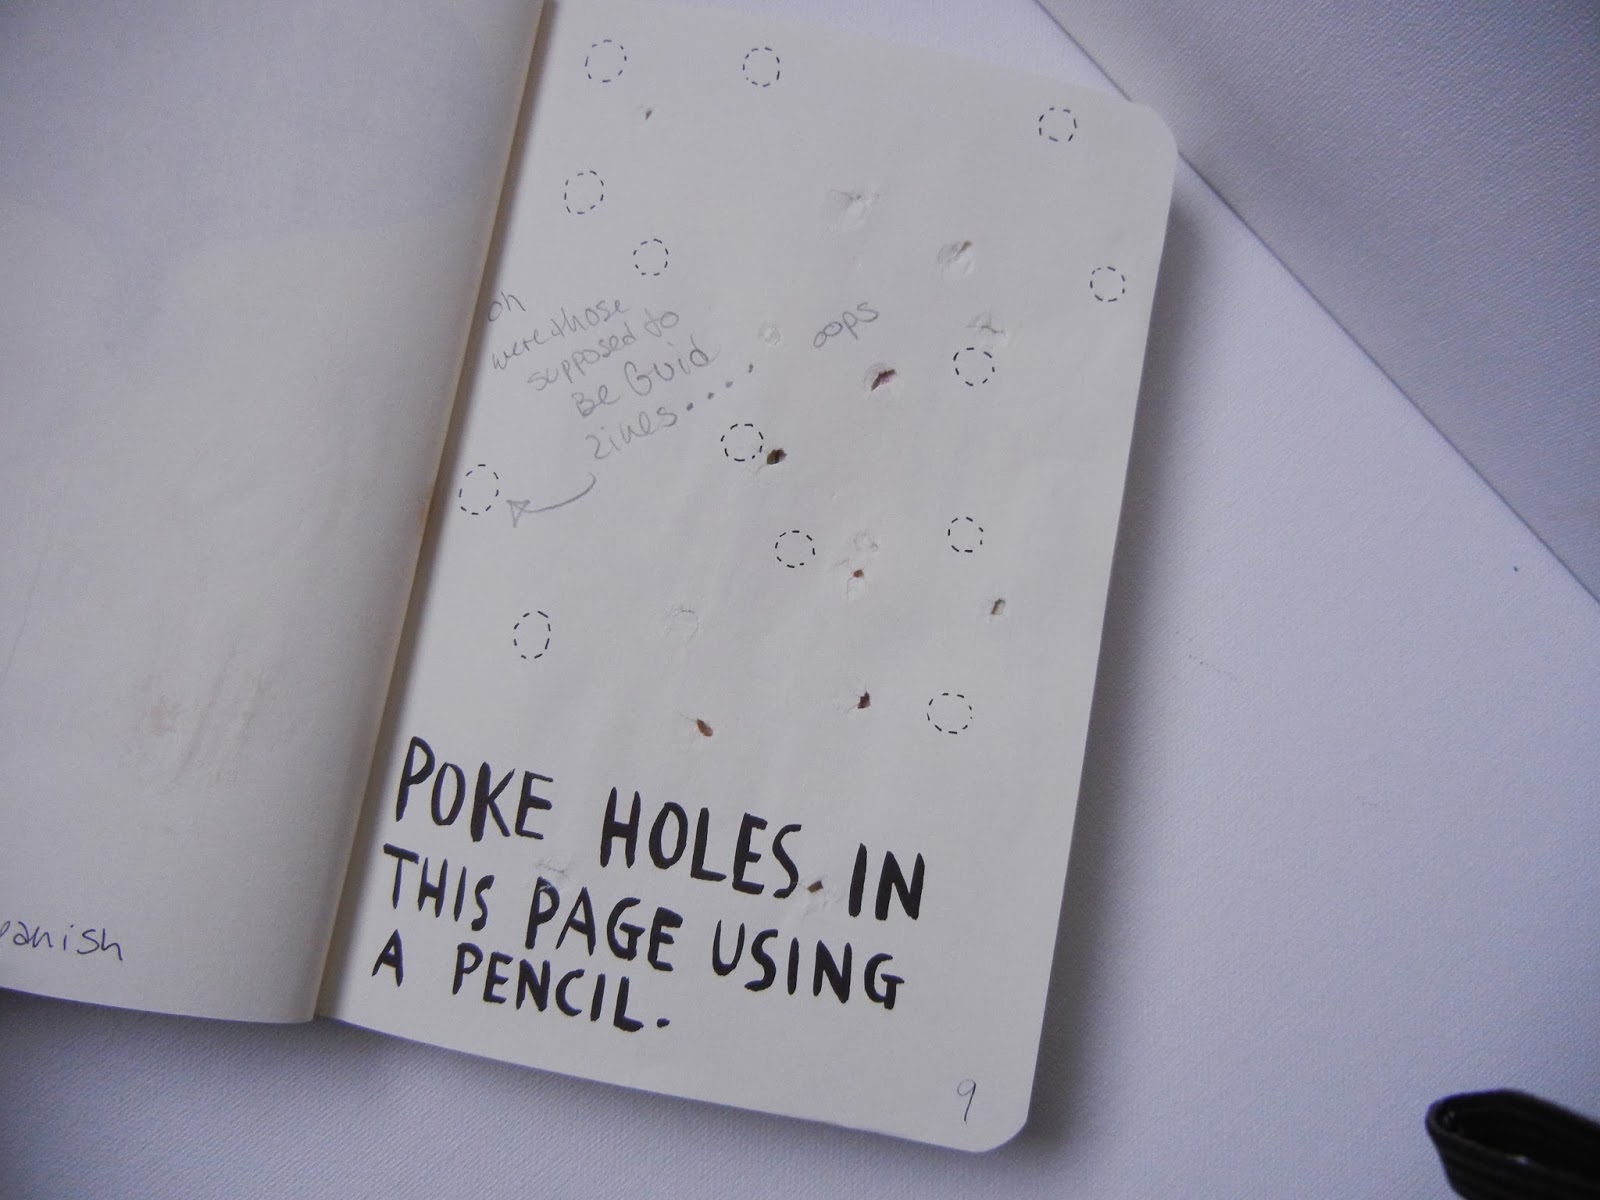 oh
were those
supposed to
Be Guid
lines.....
oops
POKE HOLES IN
THIS PAGE USING
A PENCIL.
9
panish